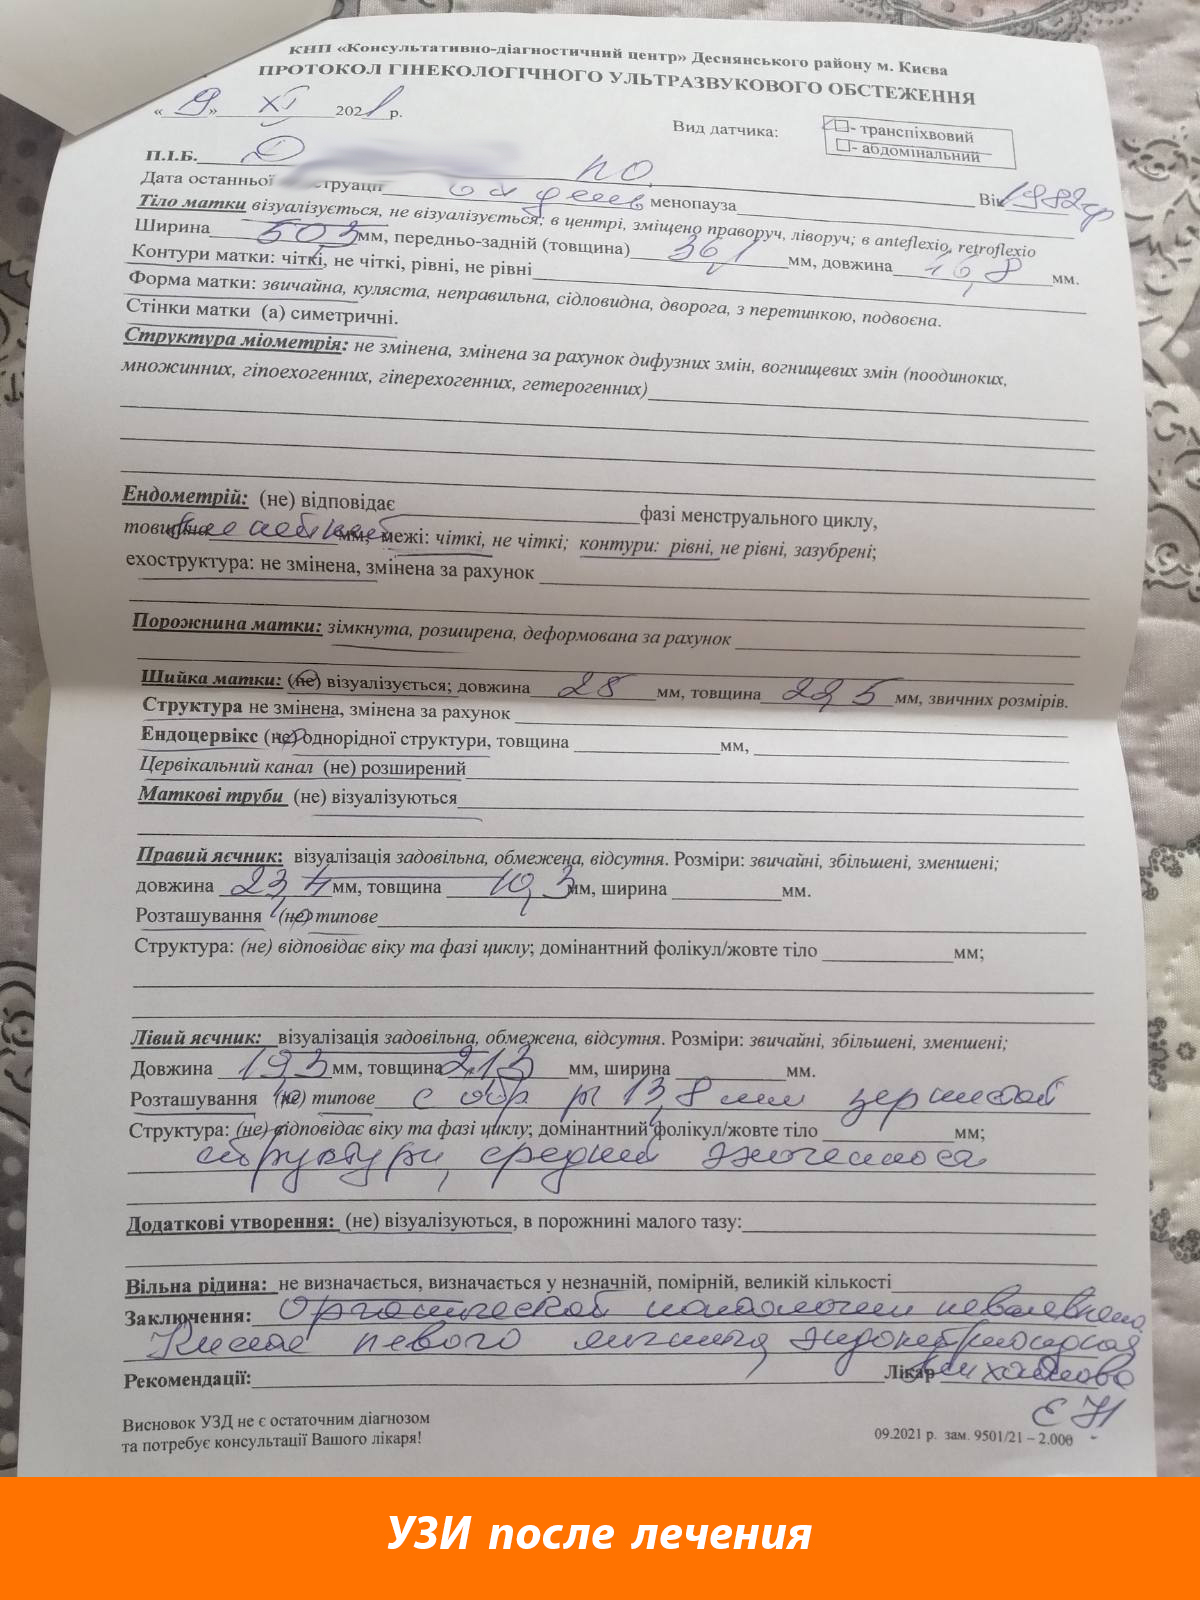 КНП «Консультативно-діагностичний центр» Деснянського району м. Києва
ПРОТОКОЛ ГІНЕКОЛОГІЧНОГО УЛЬТРАЗВУКОВОГО ОБСТЕЖЕННЯ
« 9 » XI 2021 р.
Вид датчика: - транспіхвовий
- абдомінальний
П.І.Б.
Дата останньої струації день менопауза Вік 1982
Тіло матки візуалізується, не візуалізується; в центрі, зміщено праворуч, ліворуч; в anteflexio, retroflexio
Ширина 50,3 мм, передньо-задній (товщина) 36,1 мм, довжина 46,8 мм.
Контури матки: чіткі, не чіткі, рівні, не рівні
Форма матки: звичайна, куляста, неправильна, сідловидна, дворога, з перетинкою, подвоєна.
Стінки матки (а) симетричні.
Структура міометрія: не змінена, змінена за рахунок дифузних змін, вогнищевих змін (поодиноких,
множинних, гіпоехогенних, гіперехогенних, гетерогенних)
Ендометрій: (не) відповідає фазі менструального циклу,
товщина мм, межі: чіткі, не чіткі; контури: рівні, не рівні, зазубрені;
ехоструктура: не змінена, змінена за рахунок
Порожнина матки: зімкнута, розширена, деформована за рахунок
Шийка матки: (не) візуалізується; довжина 28 мм, товщина 22,5 мм, звичних розмірів.
Структура не змінена, змінена за рахунок
Ендоцервікс (не) однорідної структури, товщина мм,
Цервікальний канал (не) розширений
Маткові труби (не) візуалізуються
Правий яєчник: візуалізація задовільна, обмежена, відсутня. Розміри: звичайні, збільшені, зменшені;
довжина 23,4 мм, товщина 10,3 мм, ширина мм.
Розташування (не) типове
Структура: (не) відповідає віку та фазі циклу; домінантний фолікул/жовте тіло мм;
Лівий яєчник: візуалізація задовільна, обмежена, відсутня. Розміри: звичайні, збільшені, зменшені;
Довжина 19,3 мм, товщина 21,3 мм, ширина мм.
Розташування (не) типове с обр 13,8 мм зернистой
Структура: (не) відповідає віку та фазі циклу; домінантний фолікул/жовте тіло мм;
структури, средней эхогенности
Додаткові утворення: (не) візуалізуються, в порожнині малого тазу:
Вільна рідина: не визначається, визначається у незначній, помірній, великій кількості
Заключення: Органической патологии не выявлено
Киста левого яичника, эндометриоидная
Рекомендації: Лікар Михайлова
Е Н
Висновок УЗД не є остаточним діагнозом
та потребує консультації Вашого лікаря!
09.2021 р. зам. 9501/21 – 2.000
УЗИ после лечения